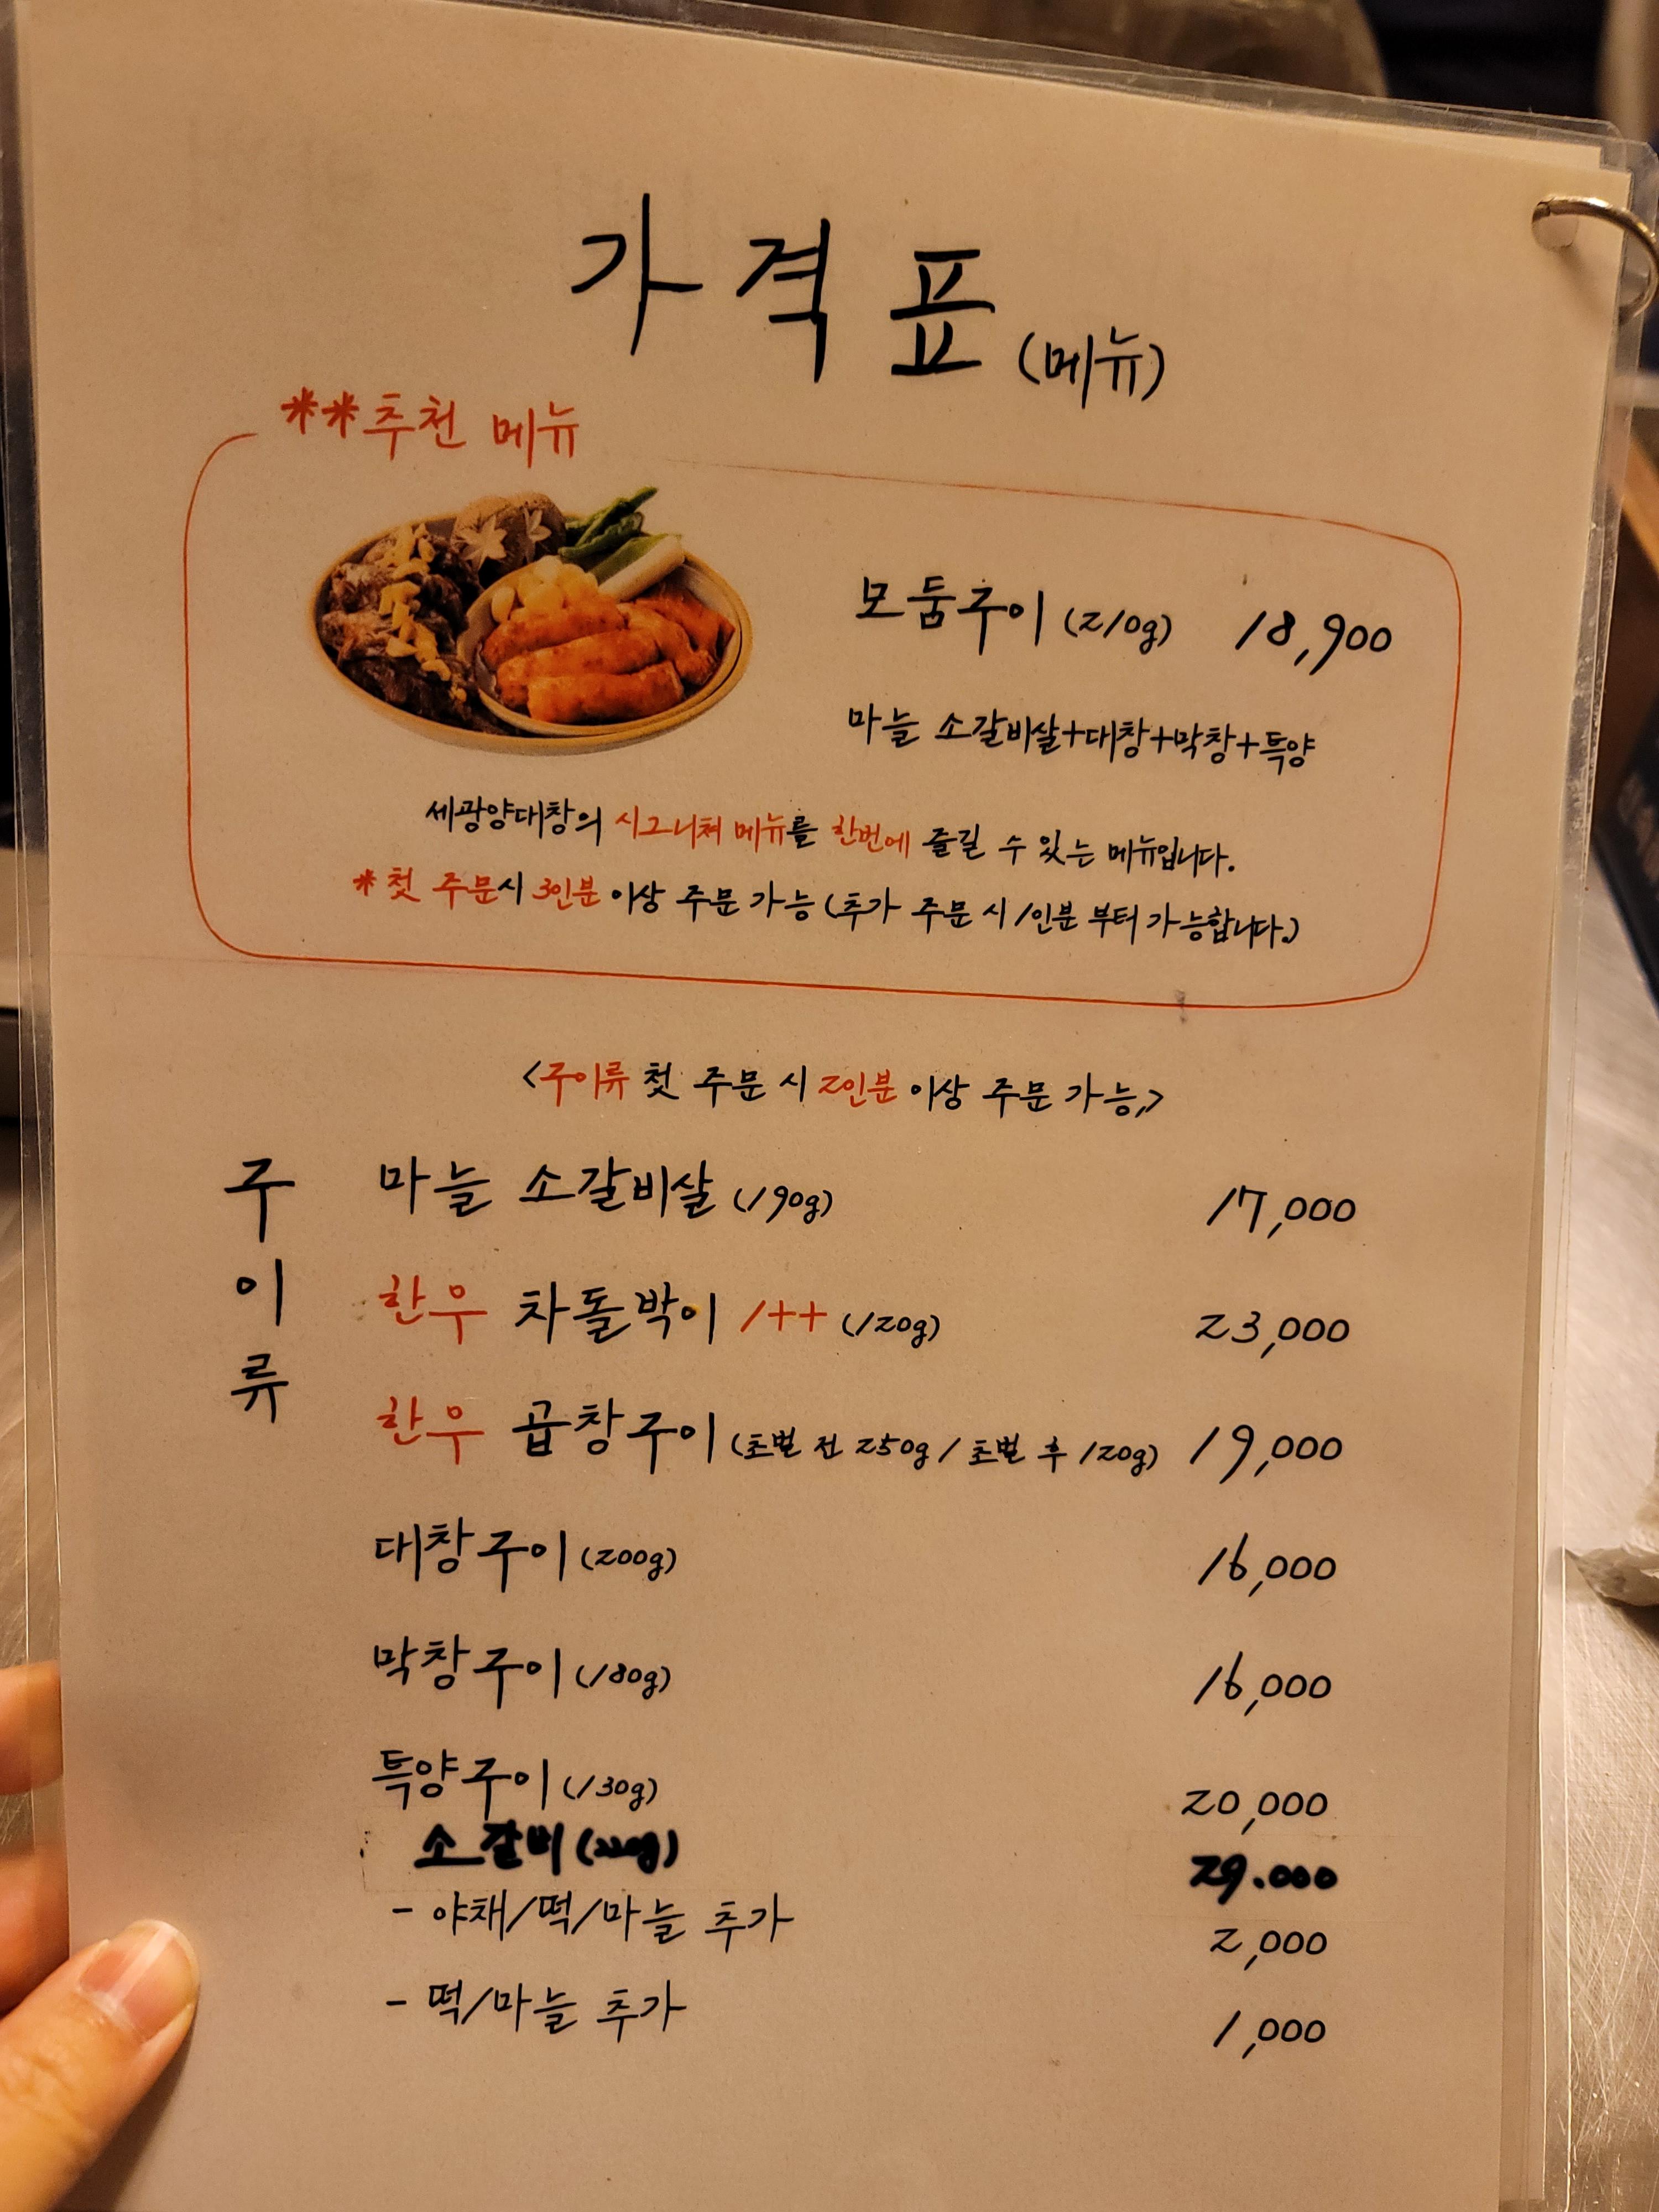 가격표 (메뉴)
**추천 메뉴
모둠구이 (210g) 18,900
마늘 소갈비살+대창+막창+특양
세광양대창의 시그니처 메뉴를 한번에 즐길 수 있는 메뉴입니다.
*첫 주문시 3인분 이상 주문 가능 (추가 주문 시 1인분 부터 가능합니다.)
<구이류 첫 주문 시 2인분 이상 주문 가능.>
구이류
마늘 소갈비살 (190g) 17,000
한우 차돌박이 1++ (120g) 23,000
한우 곱창구이 (초벌 전 250g / 초벌 후 120g) 19,000
대창구이 (200g) 16,000
막창구이 (180g) 16,000
특양구이 (130g) 20,000
소갈비 29.000
- 야채/떡/마늘 추가 2,000
- 떡/마늘 추가 1,000